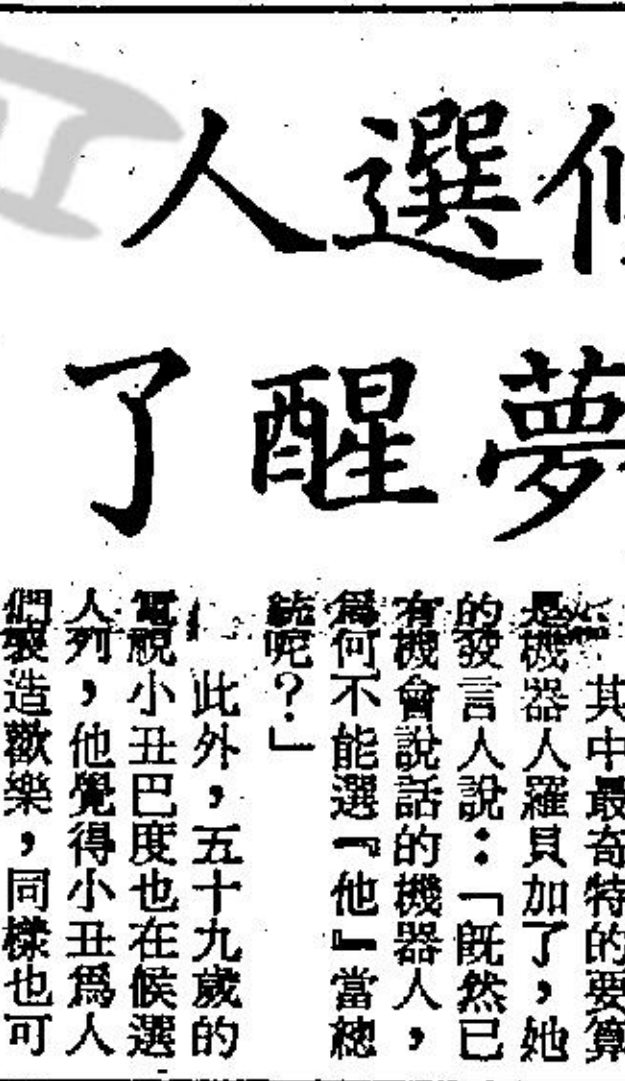 選人
夢醒了
其中最奇特的要算
是機器人羅貝加了，她
的發言人說：「既然已
有機會說話的機器人，
爲何不能選『他』當總
統呢？」
此外，五十九歲的
電視小丑巴度也在候選
人列，他覺得小丑爲人
們製造歡樂，同樣也可